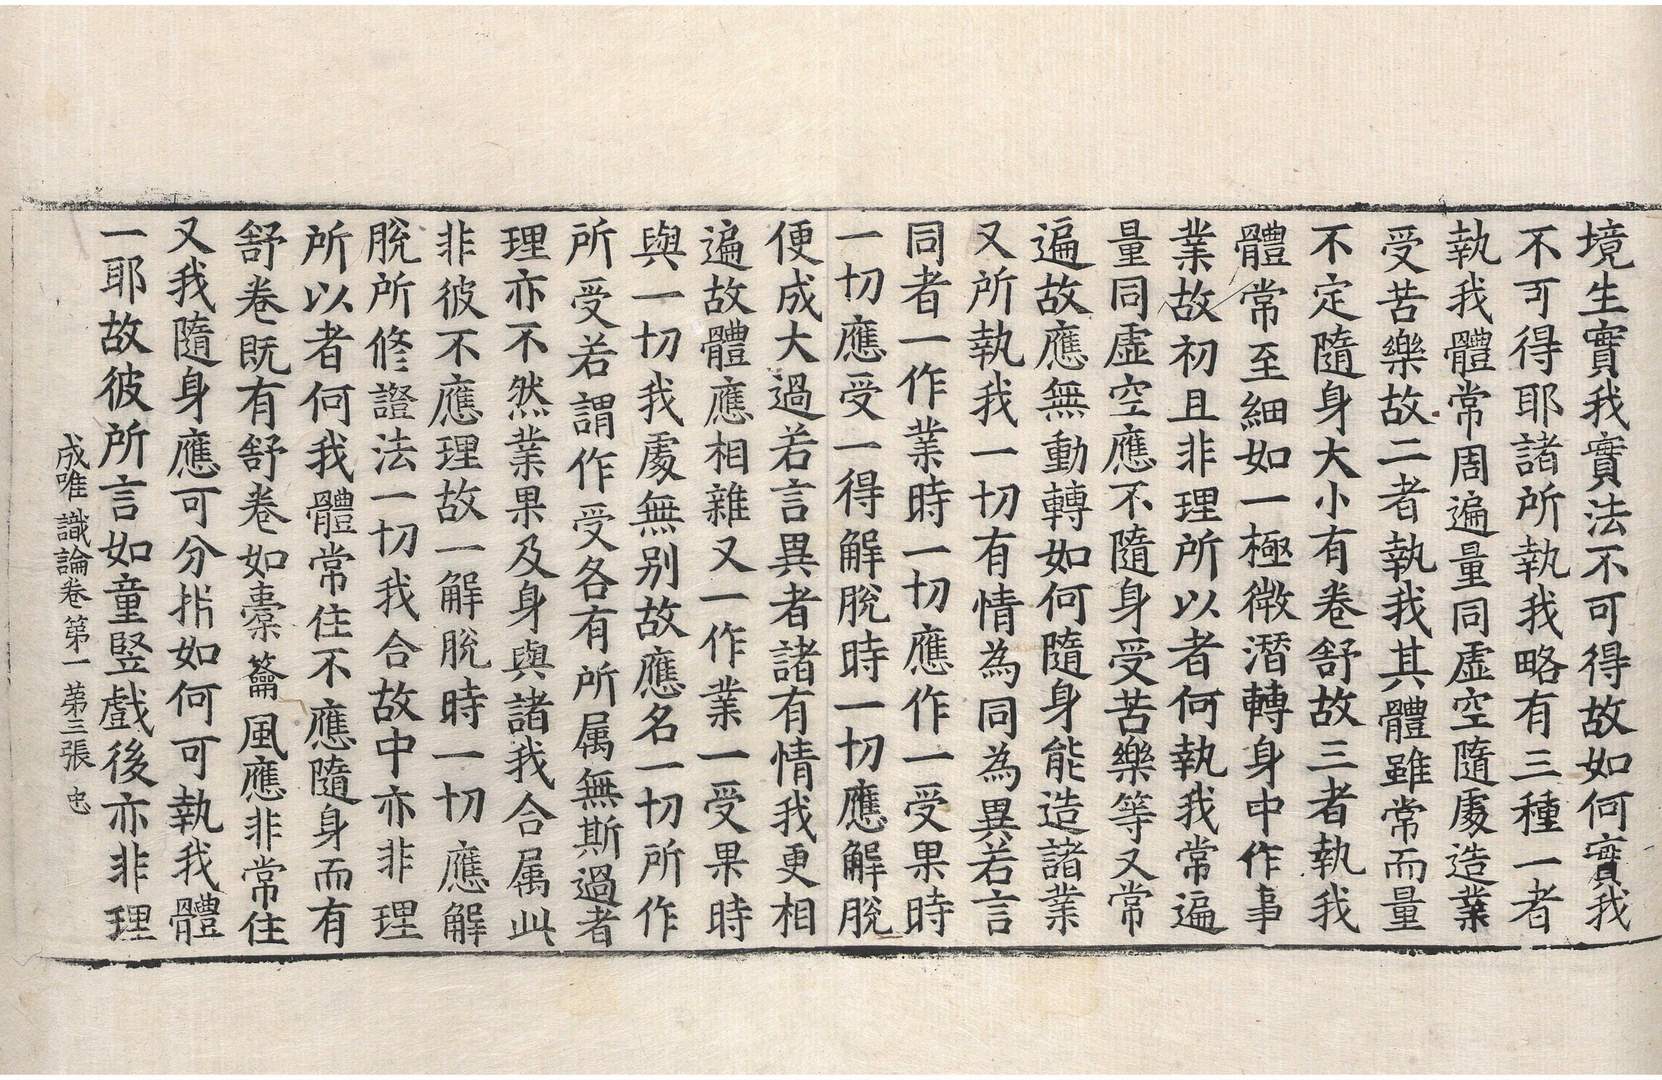 境生實我實法不可得故如何實我
不可得耶諸所執我略有三種一者
執我體常周遍量同虛空隨處造業
受苦樂故二者執我其體雖常而量
不定隨身大小有卷舒故三者執我
體常至細如一極微潛轉身中作事
業故初且非理所以者何執我常遍
量同虛空應不隨身受苦樂等又常
遍故應無動轉如何隨身能造諸業
又所執我一切有情為同為異若言
同者一作業時一切應作一受果時
一切應受一得解脫時一切應解脫
便成大過若言異者諸有情我更相
遍故體應相雜又一作業一受果時
與一切我處無別故應名一切所作
所受若謂作受各有所属無斯過者
理亦不然業果及身與諸我合属此
非彼不應理故一解脫時一切應解
脫所修證法一切我合故中亦非理
所以者何我體常住不應隨身而有
舒卷既有舒卷如橐籥風應非常住
又我隨身應可分析如何可執我體
一耶故彼所言如童竪戲後亦非理
成唯識論卷第一 第三張 忠